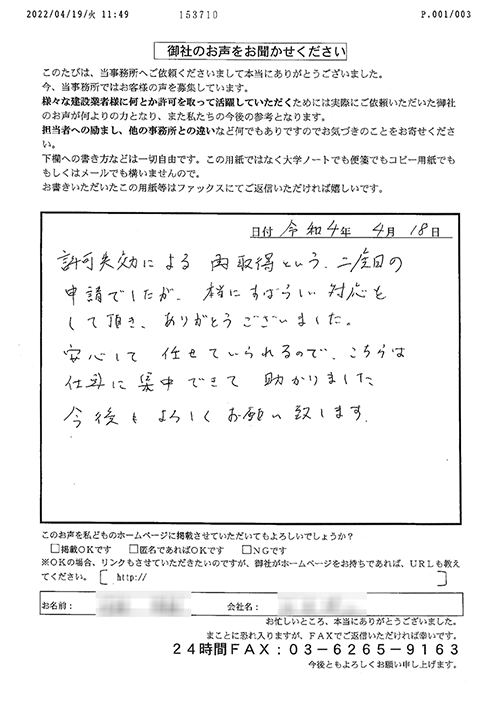 2022/04/19/火 11:49 153710 P.001/003
御社のお声をお聞かせください
このたびは、当事務所へご依頼くださいまして本当にありがとうございました。
今、当事務所ではお客様の声を募集しています。
様々な建設業者様に何とか許可を取って活躍していただくためには実際にご依頼いただいた御社
のお声が何よりの力となり、また私たちの今後の参考となります。
担当者への励まし、他の事務所との違いなど何でもありですのでお気づきのことをお寄せくださ
い。
下欄への書き方などは一切自由です。この用紙ではなく大学ノートでも便箋でもコピー用紙でも
もしくはメールでも構いませんので。
お書きいただいたこの用紙等はファックスにてご返信いただければ嬉しいです。
日付 令和4年 4月 18日
許可失効による 再取得という、二度目の
申請でしたが、本当にすばらしい 対応を
して頂き、ありがとうございました。
安心して 任せていられるので、こちらは
仕事に 集中できて 助かりました
今後も よろしく お願い致します.
このお声を私どものホームページに掲載させていただいてもよろしいでしょうか?
□掲載OKです □匿名であればOKです □NGです
※OKの場合、リンクもさせていただきたいのですが、御社がホームページをお持ちであれば、URLも教え
てください。[ http:// ]
お名前: 会社名:
お忙しいところ、本当にありがとうございました。
まことに恐れ入りますが、FAXでご返信いただければ幸いです。
24時間FAX:03-6265-9163
今後ともよろしくお願い申し上げます。